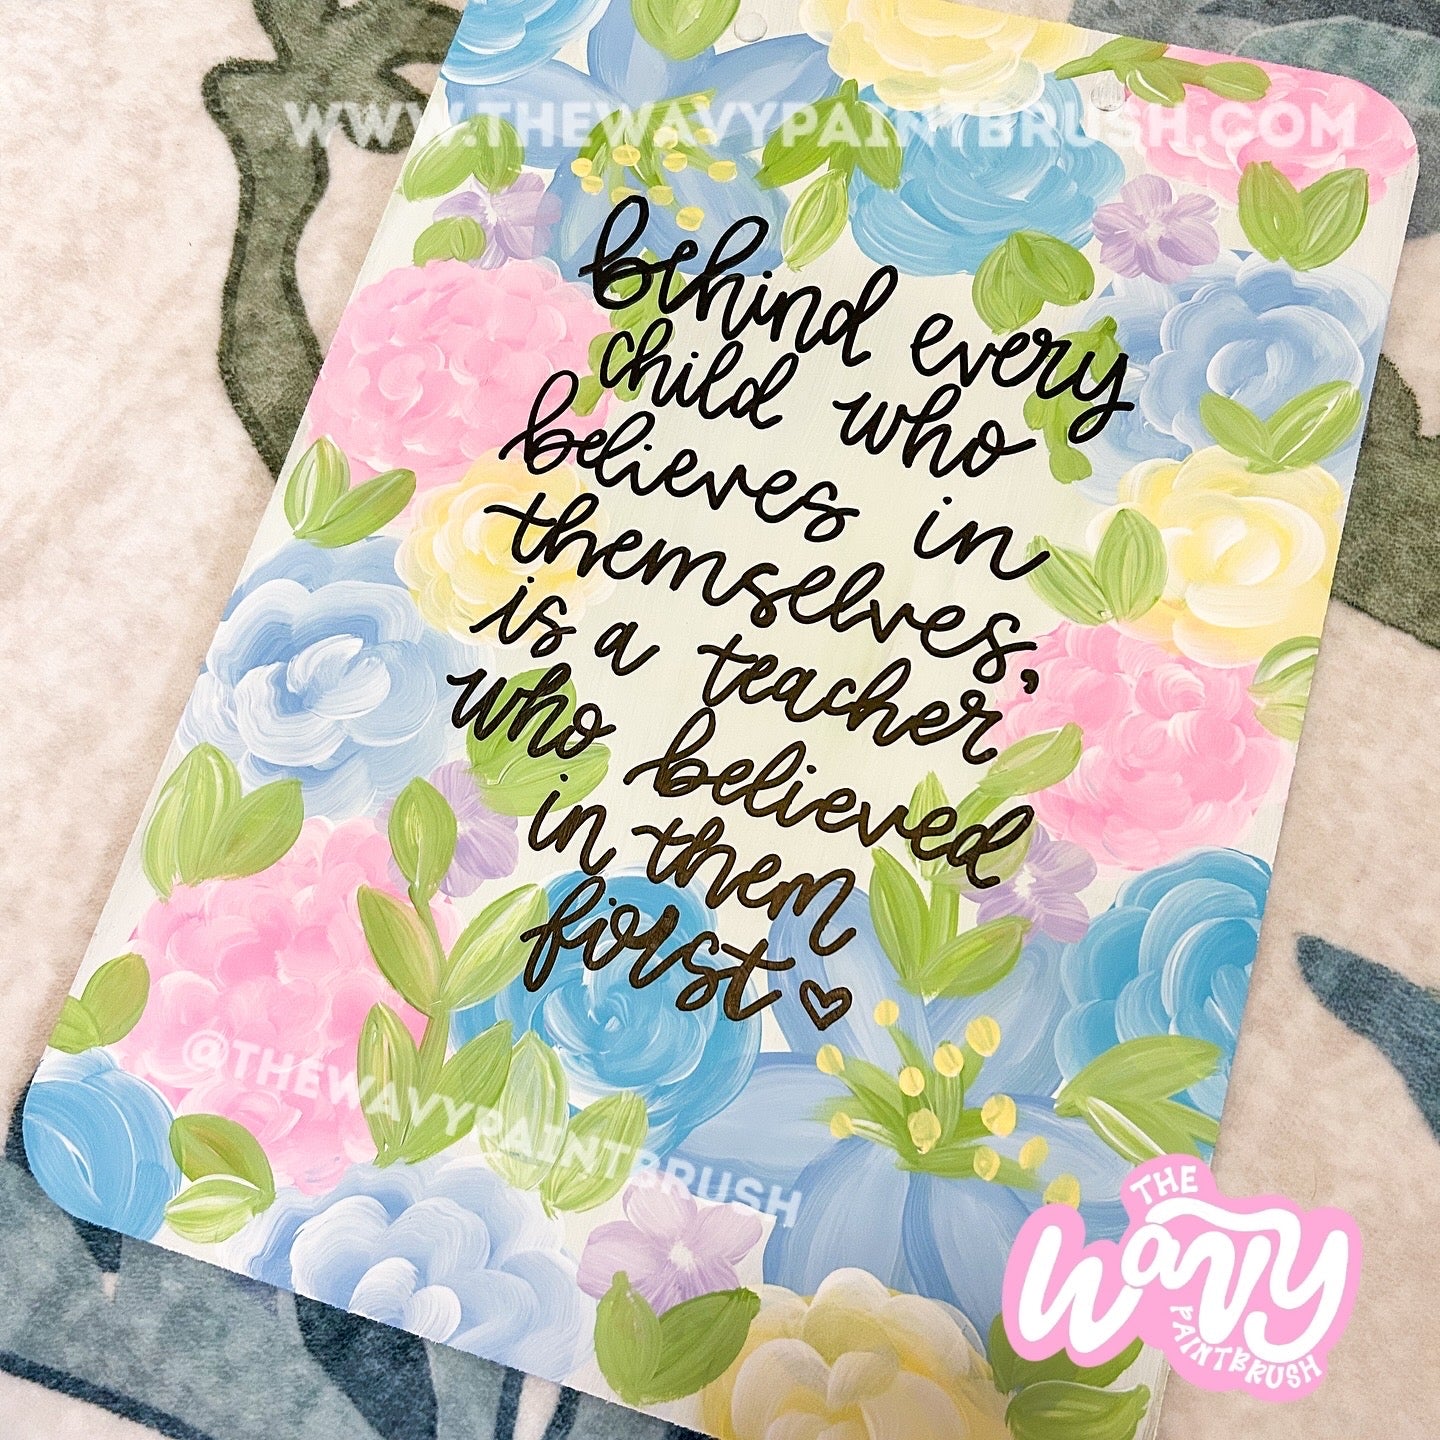 WWW.THEWAVYPAINTBRUSH.COM
behind every
child who
believes in
themselves,
is a teacher
who believed
in them
first ♡
@THEWAVYPAINTBRUSH
THE
WAVY
PAINTBRUSH